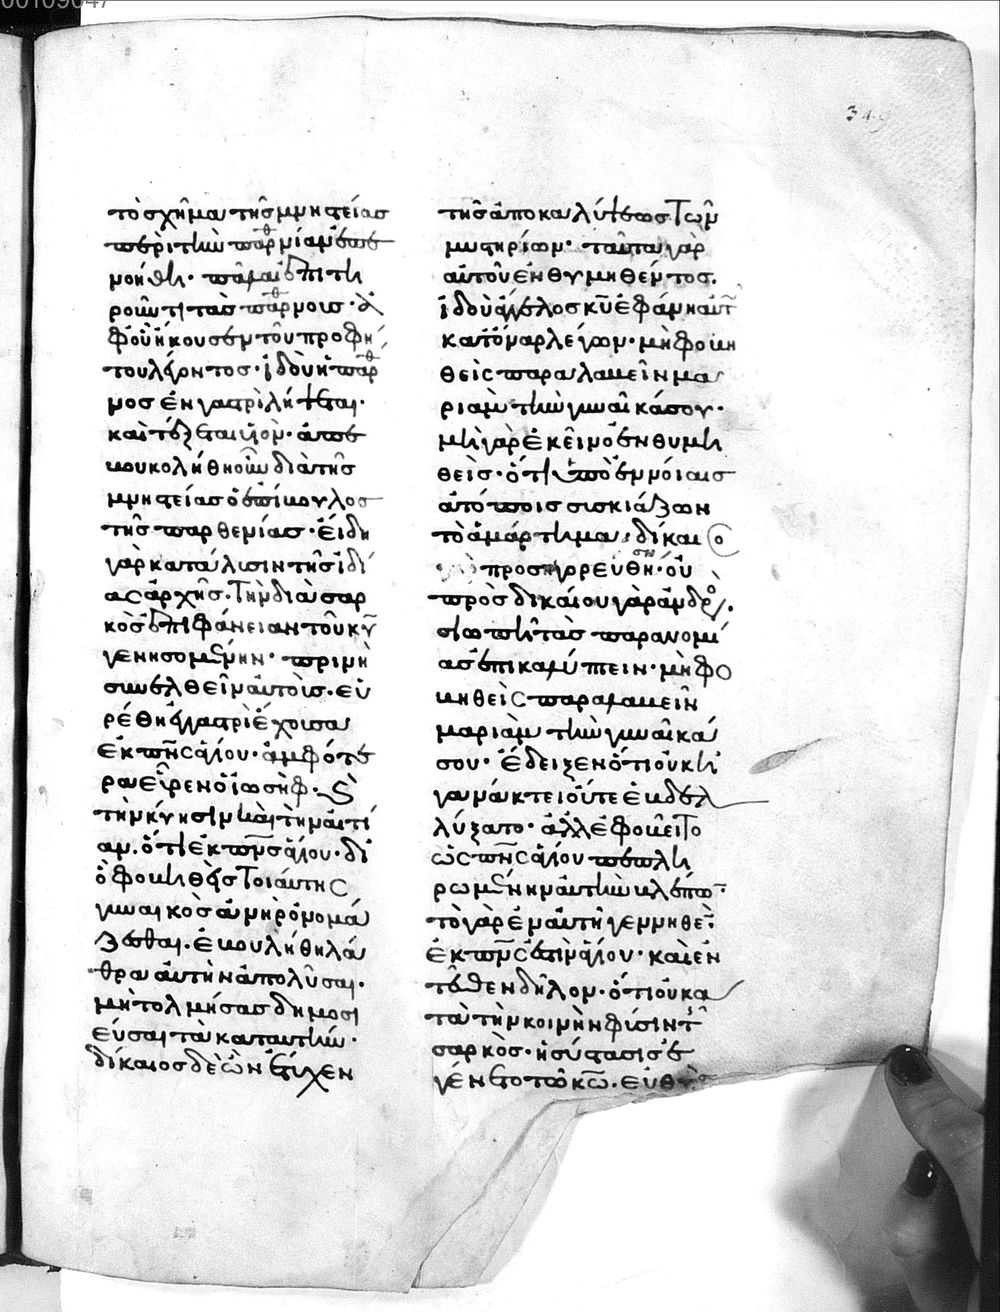 00109047
349
τὸ σχῆμα τῆς μνηστείας
περὶ τὴν παρθνίαν
μονὴν
ροῦντι τὰς παρθνοις
οὐ ἤκουσεν τοῦ προφή
του λέγοντος· ἰδοὺ ἡ παρθ
νος ἐν γαστρὶ λήψεται·
καὶ τέξεται υἱόν·
βουκοληθῆ οὖν διὰ τῆς
μνηστείας ὁ ἐπίβουλος
τῆς παρθενίας· εἴδη
γὰρ κατάλυσιν τῆς ἰδί
ας ἀρχῆς· τὴν διὰ σαρ
κὸς ἐπιφάνειαν τοῦ κυ
γενησομένην· πρινὴ
συνελθεῖν αὐτοὺς· εὑ
ρέθη ἐγγαστρὶ ἔχουσα
ἐκ πνς ἁγίου· ἀμφότε
ρα εἷρεν ὁ ἰωσὴφ·
τὴν κύησιν καὶ τὴν αἰτί
αν· ὅτι ἐκ πνς ἁγίου· δι
ὃ φοβηθεὶς τοιαύτης
γυναικὸς ἀνὴρ ὀνομά
ζεσθαι· ἐβουλήθη λά
θρα αὐτὴν ἀπολῦσαι·
μὴ τολμήσας δημοσι
εύσαι τὰ κατ' αὐτὴν·
δίκαιος δὲ ὢν ἔτυχεν
τῆς ἀποκαλύψεως τῶν
μυστηρίων· ταῦτα γὰρ
αὐτοῦ ἐνθυμηθέντος·
ἰδοὺ ἄγγελος κυ ἐφάνη αὐτ
κατ' ὄναρ λέγων· μὴ φοβη
θεὶς παραλαβεῖν μα
ριὰμ τὴν γυναῖκά σου·
μὴ γὰρ ἐκεῖνο ἐνθυμη
θεὶς· ὅτι ὑπὸ ἐννοίας
ἀτόποις συσκιάζων
τὸ ἁμάρτημα· δίκαιο
προσηγορεύθη· οὐ
πρὸς δικαίου γὰρ ἀνδρὸς
σιωπῇ τὰς παρανομί
ας ἐπικαλύπτειν· μὴ φο
βηθεὶς παραλαβεῖν
μαριὰμ τὴν γυναῖκά
σου· ἔδειξεν ὅτι οὐκ ἠ
γανάκτει οὔτε ἐβδελ
λύξατο· ἀλλ' ἐφοβεῖτο
ὡς πνς ἁγίου πεπλη
ρωμένην αὐτὴν βλέπων·
τὸ γὰρ ἐν αὐτῇ γεννηθὲν
ἐκ πνς ἐστὶν ἁγίου· καὶ ἐν
τεῦθεν δῆλον· ὅτι οὐ κα
τὰ τὴν κοινὴν φύσιν τ
σαρκὸς· ἡ σύστασις ἐ
γένετο τῶ κω·